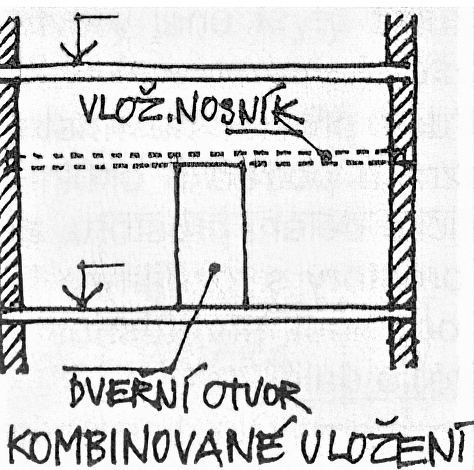 VLOŽ.NOSNÍK
DVERNÍ OTVOR
KOMBINOVANÉ ULOŽENÍ